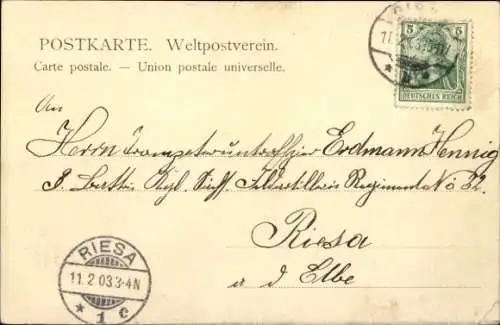 POSTKARTE. Weltpostverein.
Carte postale. — Union postale universelle.
5 5
DEUTSCHES REICH
An
Herrn Trompeterunteroffizier Erdmann Hennig
Kgl. Regiment No 32.
Riesa
a d Elbe
RIESA
11.2.03.3-4N
* 1 c